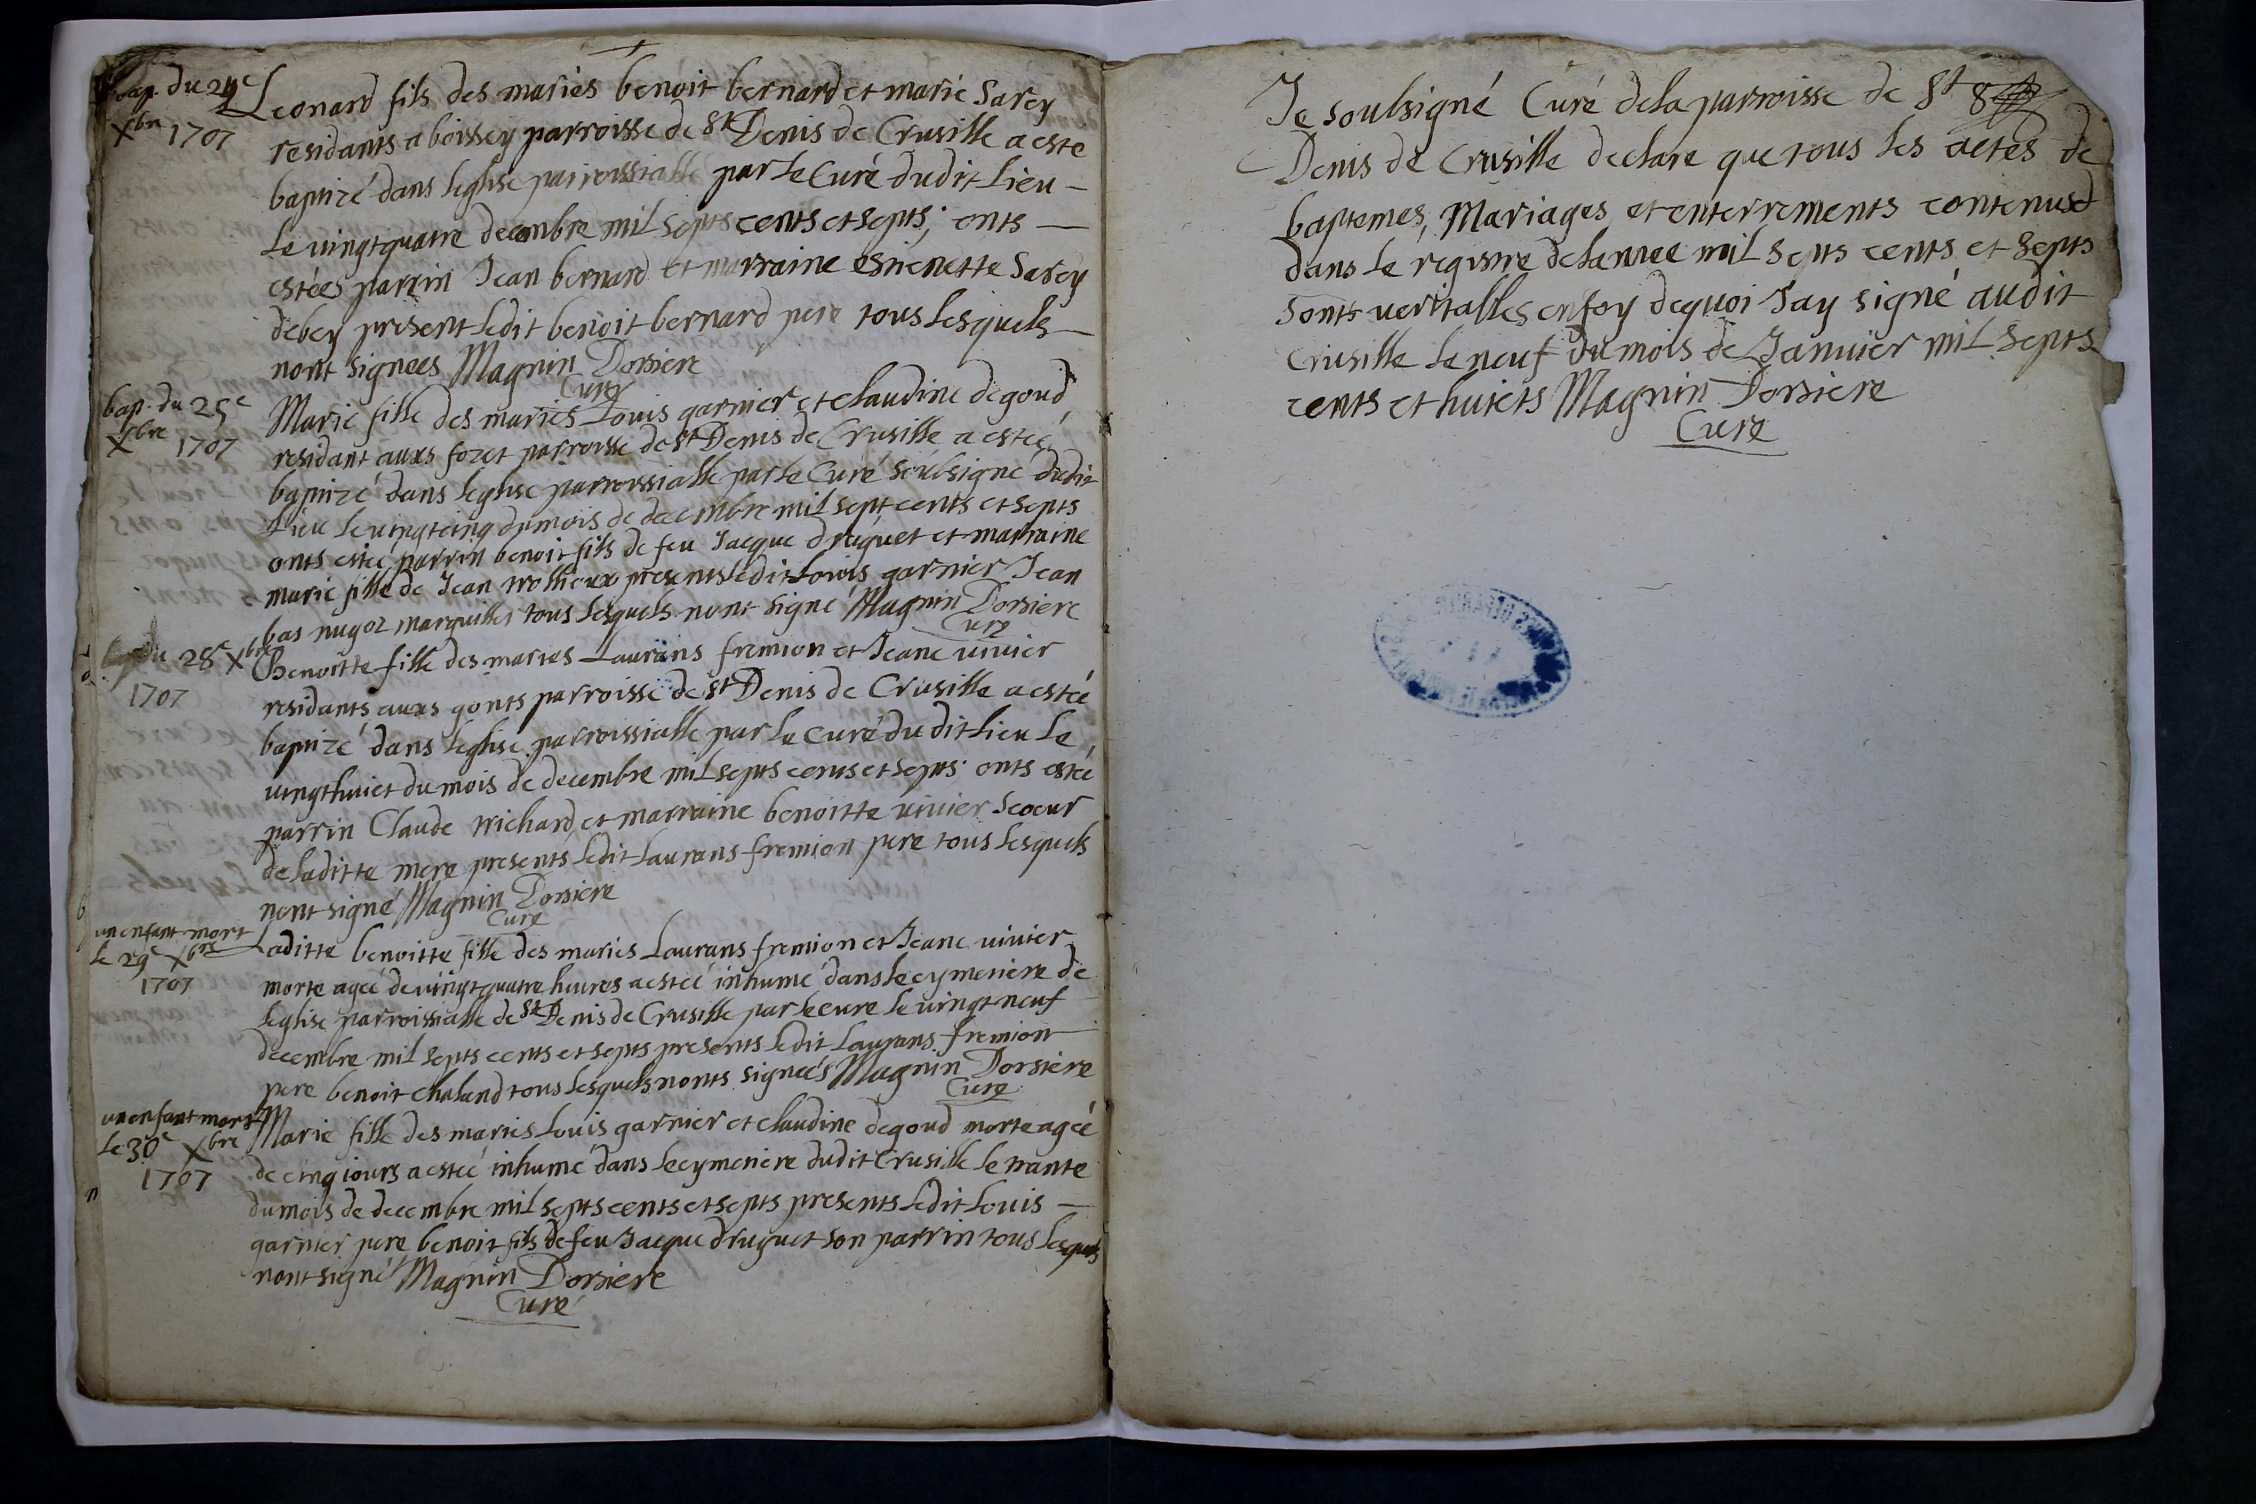 bap. du 24e
Xbre 1707
Leonard fils des mariés benoit bernard et marie Sarey
residants a boissey parroisse de St Denis de Crusille a este
baptizé dans leglise parroissialle par le Curé dudit Lieu –
Le vingtquatre decembre mil septs cents et septs; onts –
estées parrin Jean bernard et marraine estienette Sarey
debey present ledit benoit bernard pere tous lesquels –
nont signees Magnin Dorsiere
Curé
bap. du 25e
Xbre 1707
Marie fille des mariés Louis garnier et claudine degoud
residant auxs fozet parroisse de St Denis de Crusille a estée
baptizé dans leglise parroissialle par le Curé soubsigné dudit
Lieu le vingtcinq du mois de decembre mil sept cents et septs
onts estée parrin benoit fils de feu Jacque druguet et marraine
marie fille de Jean trollieux presents ledit Louis garnier Jean
bas nugoz marguillier tous lesquels nont signé Magnin Dorsiere
Curé
bap du 28e Xbre
1707
Benoitte fille des maries Laurans fremion et Jeane vivier
residants auxs gonts parroisse de St Denis de Crusille a estée
baptizé dans leglise parroissialle par le curé du dit Lieu le
vingthuict du mois de decembre mil septs cents et septs; onts estée
parrin Claude trichard et marraine benoitte vivier scoeur
de laditte mere presents ledit Laurans fremion pere tous lesquels
nont signé Magnin Dorsiere
Curé
un enfant mort
le 29e Xbre
1707
Laditte benoitte fille des mariés Laurans fremion et Jeane vivier
morte agée de vingtquatre heures a estée inhumé dans le cymetiere de
leglise parroissialle de St Denis de Crusille par le cure le vingt neuf
decembre mil septs cents et septs presents ledit Laurans fremion
pere benoit chaland tous lesquels nonts signeés Magnin Dorsiere
Curé
un enfant mort
Le 30e Xbre
1707
Marie fille des mariés Louis garnier et claudine degoud morte agée
de cinq jours a estée inhumé dans le cymetiere dudit Crusille le trante
du mois de decembre mil septs cents et septs presents ledit Louis –
garnier pere benoit fils de feu Jacque druguet son parrin tous lesquels
nont signé Magnin Dorsiere
Curé
Je soubsigné Curé de la parroisse de St
Denis de Crusille declare que tous les actes de
baptemes, Mariages et enterrements contenus
dans le registre de lannee mil septs cents et septs
sonts veritalles en foy dequoi Jay signé audit
Crusille le neuf du mois de Janvier mil septs
cents et huicts Magnin Dorsiere
Curé